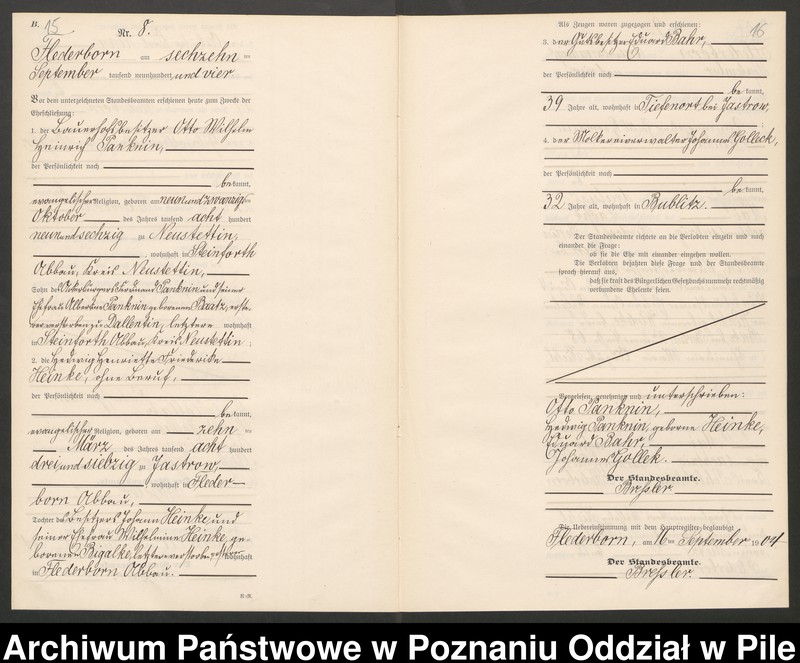 B.
15
Nr. 8.
Flederborn am sechzehn ten
September tausend neunhundert und vier
Vor dem unterzeichneten Standesbeamten erschienen heute zum Zwecke der
Eheschließung:
1. der Bauerhofsbesitzer Otto Wilhelm
Heinrich Panknin,
der Persönlichkeit nach
be kannt,
evangelischer Religion, geboren am neunundzwanzigsten
Oktober des Jahres tausend acht hundert
neunundsechzig zu Neustettin,
, wohnhaft in Steinforth
Abbau, Kreis Neustettin,
Sohn des Ackerbürgers Ferdinand Panknin und seiner
Ehefrau Albertine Panknin geborenen Raatz, erste-
rer verstorben zu Dallentin, letztere wohnhaft
in Steinforth Abbau, Kreis Neustettin;
2. die Hedwig Henriette Friederike
Heinke, ohne Beruf,
der Persönlichkeit nach
be kannt,
evangelischer Religion, geboren am zehn ten
März des Jahres tausend acht hundert
dreiundsiebzig zu Jastrow,
, wohnhaft in Fleder-
born Abbau,
Tochter des Besitzers Johann Heinke und
seiner Ehefrau Wilhelmine Heinke, ge-
borenen Bigalke, letztere verstorben, ersterer wohnhaft
in Flederborn Abbau.
16
Als Zeugen waren zugezogen und erschienen:
3. der Gutsbesitzer Eduard Bahr,
der Persönlichkeit nach
be kannt,
39 Jahre alt, wohnhaft in Tiefenort bei Jastrow,
4. der Molkereiverwalter Johannes Golleck,
der Persönlichkeit nach
be kannt,
32 Jahre alt, wohnhaft in Bublitz.
Der Standesbeamte richtete an die Verlobten einzeln und nach
einander die Frage:
ob sie die Ehe mit einander eingehen wollen.
Die Verlobten bejahten diese Frage und der Standesbeamte
sprach hierauf aus,
daß sie kraft des Bürgerlichen Gesetzbuchs nunmehr rechtmäßig
verbundene Eheleute seien.
Vorgelesen, genehmigt und unterschrieben:
Otto Panknin,
Hedwig Panknin, geborne Heinke,
Eduard Bahr,
Johannes Gollek.
Der Standesbeamte.
Bressler
Die Uebereinstimmung mit dem Hauptregister beglaubigt
Flederborn, am 16 ten September 19 04
Der Standesbeamte.
Bressler.
Archiwum Państwowe w Poznaniu Oddział w Pile